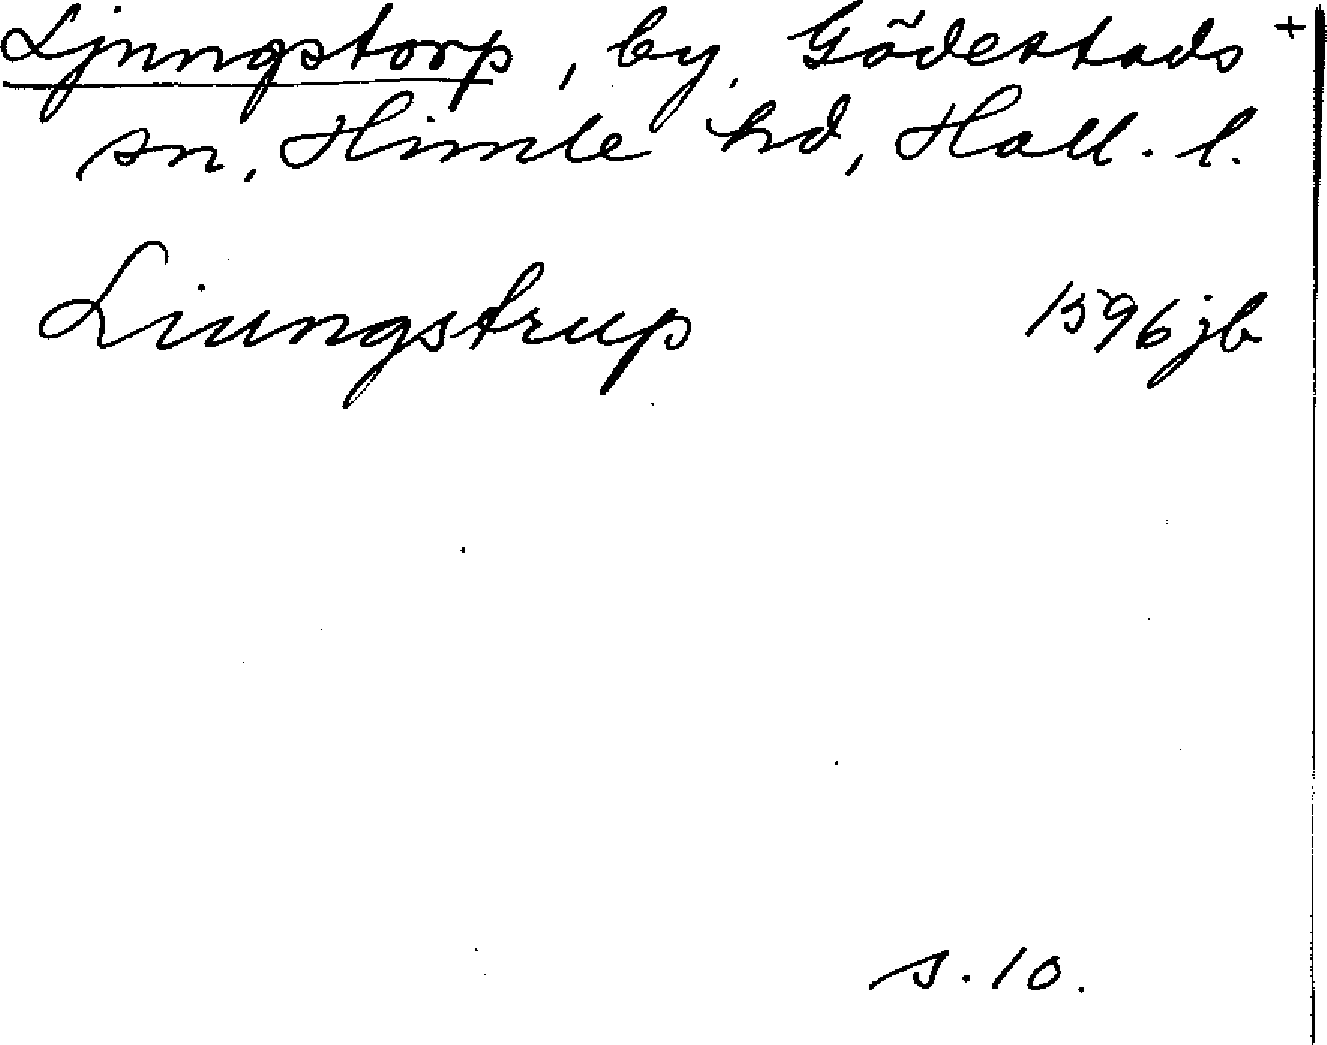 Ljungstorp, by, Gödestads +
sn, Himle hd, Hall. l.
Liungstrup 1596 jb
s. 10.